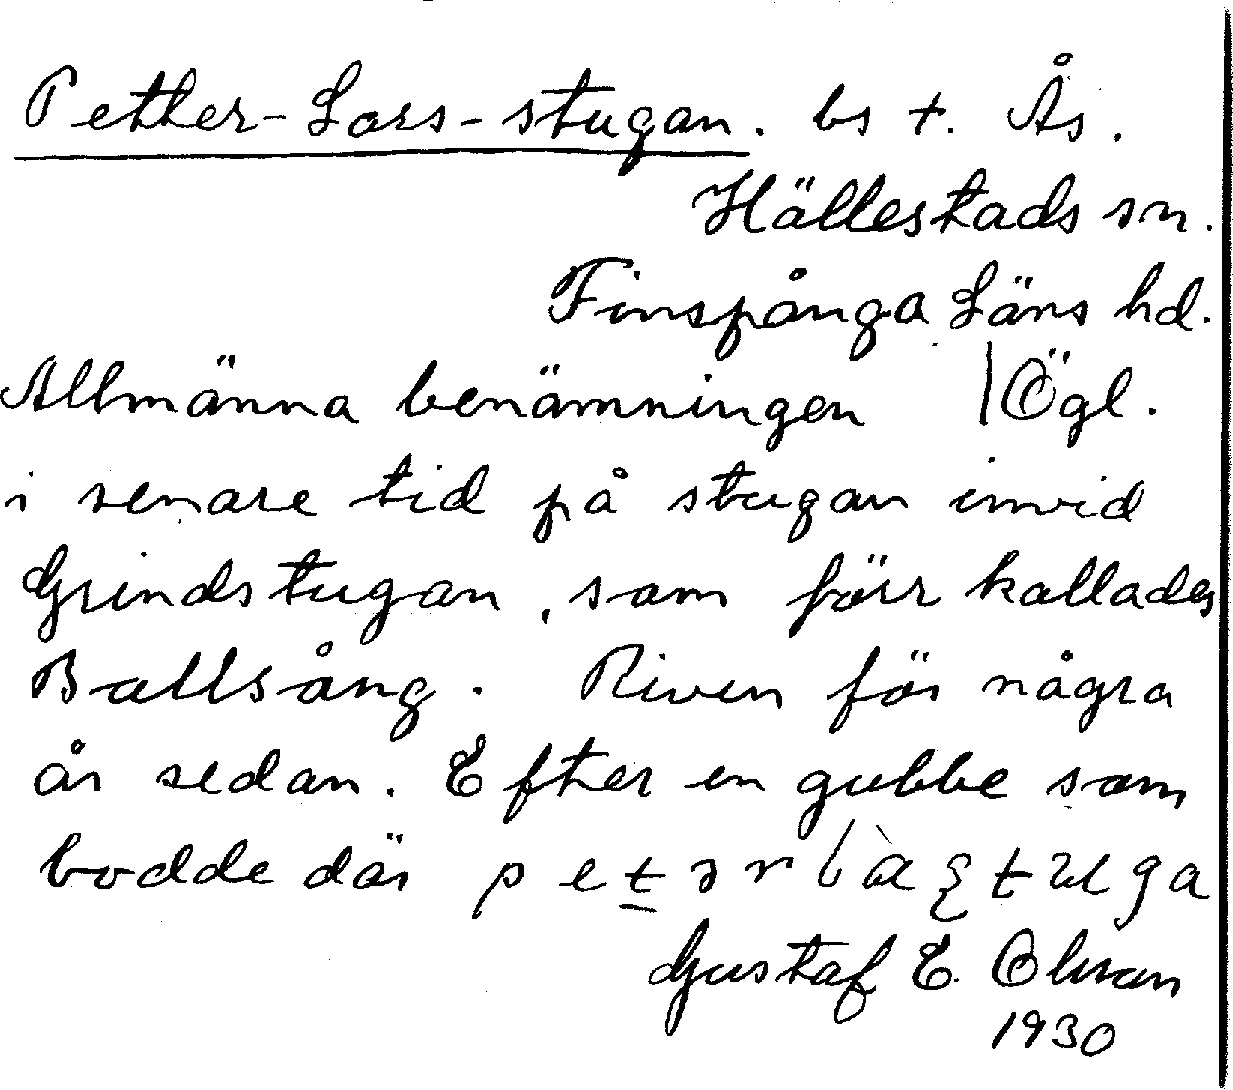 Petter-Lars-stugan. bs t. Ås.
Hällestads sn.
Finspånga Läns hd.
Allmänna benämningen | Ögl.
i senare tid på stugan invid
Grindstugan, som förr kallades
Ballsång. Riven för några
år sedan. Efter en gubbe som
bodde där
Gustaf E. Ohman
1930